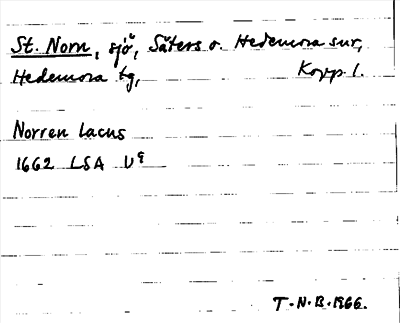 St. Norn, sjö, Säters o. Hedemora snr,
Hedemora tg, Kopp. l.
Norren lacus
1662 LSA U9
T. N. B. 1966.